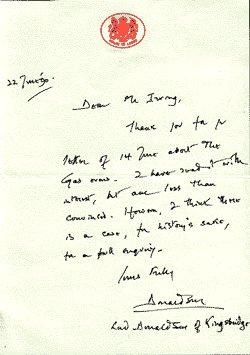 HOUSE OF LORDS
22 June '90.
Dear Mr Irving,
Thank you for yr
letter of 14 June about the
Gas ovens. I have read it with
interest, but am less than
convinced. However, I think there
is a case, for history's sake,
for a full enquiry.
Yours truly
Donaldson
Lord Donaldson of Kingsbridge